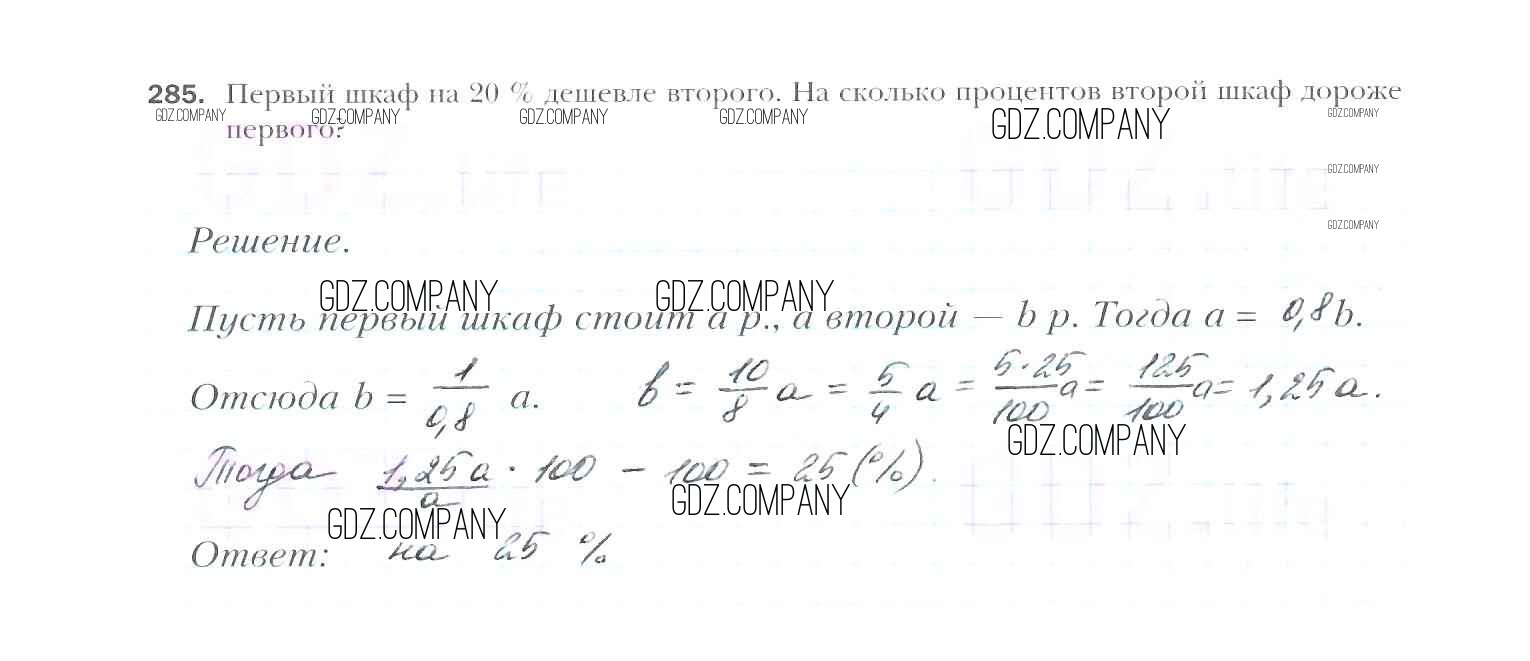 285. Первый шкаф на 20 % дешевле второго. На сколько процентов второй шкаф дороже
GDZ.COMPANY GDZ.COMPANY GDZ.COMPANY GDZ.COMPANY GDZ.COMPANY GDZ.COMPANY
первого?
GDZ.COMPANY
GDZ.COMPANY
Решение.
GDZ.COMPANY GDZ.COMPANY
Пусть первый шкаф стоит a р., а второй — b р. Тогда a = 0,8b.
Отсюда b = 1/0,8 a. b = 10/8 a = 5/4 a = 5·25/100 a = 125/100 a = 1,25a.
GDZ.COMPANY
Тогда 1,25a/a · 100 − 100 = 25 (%).
GDZ.COMPANY
GDZ.COMPANY
Ответ: на 25 %